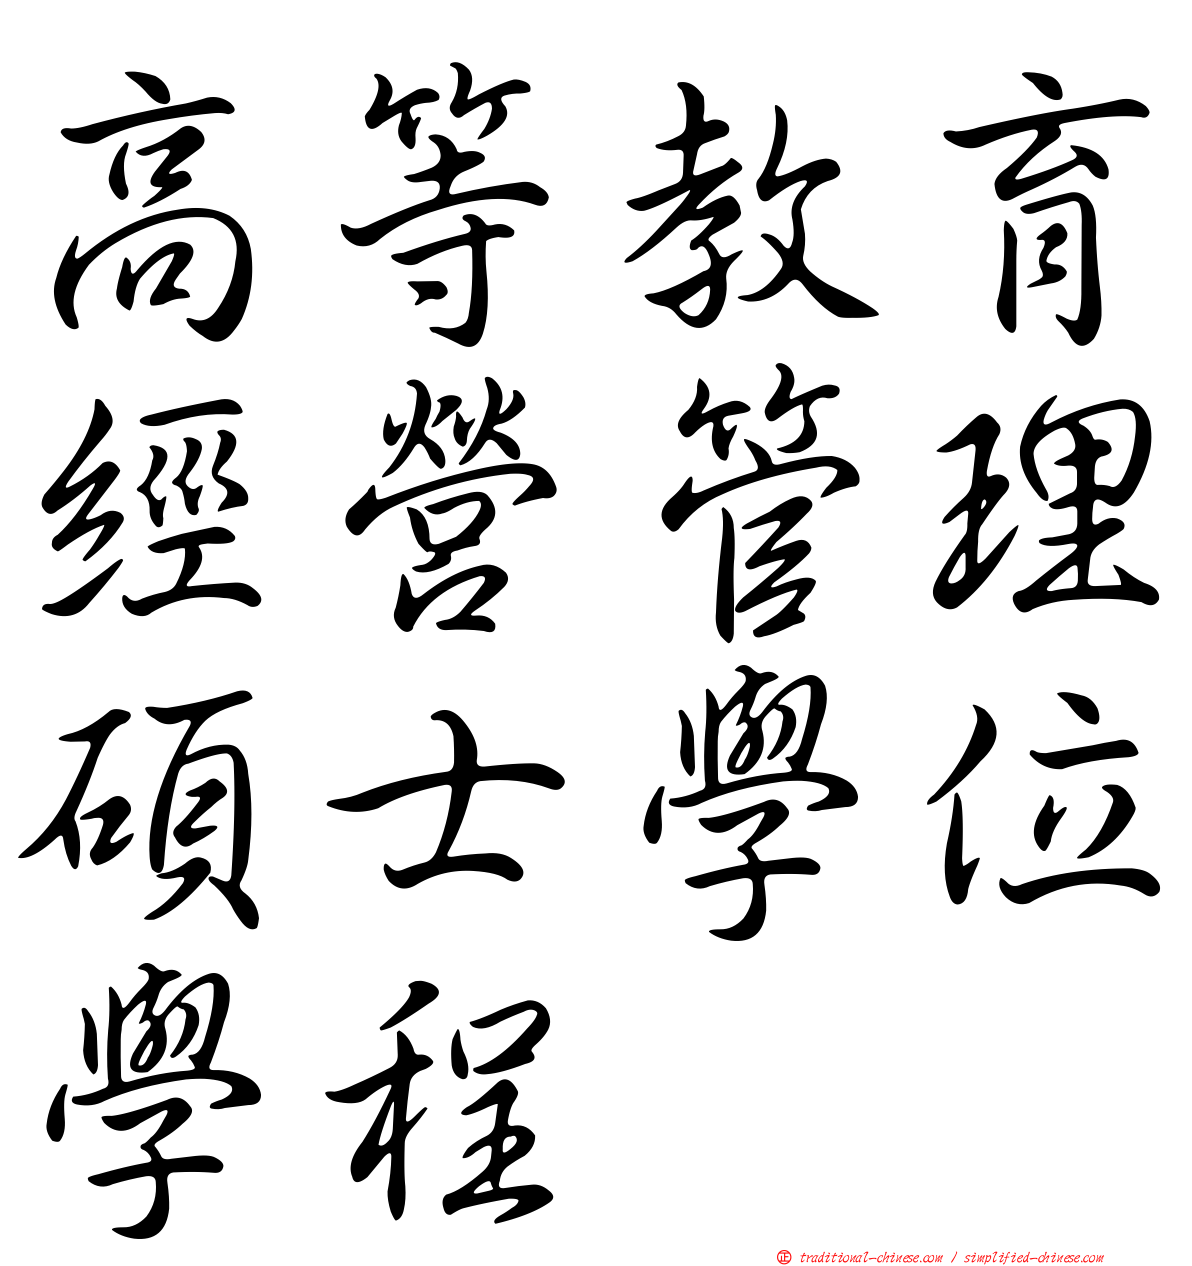 高等教育
經營管理
碩士學位
學程
㊣ traditional-chinese.com / simplified-chinese.com